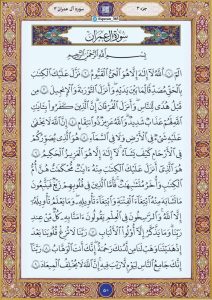 جزء ۳
سوره آل عمران ۳
سُورَةُ آلِ عِمْرَان
بِسْمِ ٱللَّهِ ٱلرَّحْمَٰنِ ٱلرَّحِيمِ
الٓمٓ ۝١ ٱللَّهُ لَآ إِلَٰهَ إِلَّا هُوَ ٱلْحَىُّ ٱلْقَيُّومُ ۝٢ نَزَّلَ عَلَيْكَ ٱلْكِتَٰبَ
بِٱلْحَقِّ مُصَدِّقًا لِّمَا بَيْنَ يَدَيْهِ وَأَنزَلَ ٱلتَّوْرَىٰةَ وَٱلْإِنجِيلَ ۝٣ مِن
قَبْلُ هُدًى لِّلنَّاسِ وَأَنزَلَ ٱلْفُرْقَانَ إِنَّ ٱلَّذِينَ كَفَرُوا۟ بِـَٔايَٰتِ
ٱللَّهِ لَهُمْ عَذَابٌ شَدِيدٌ وَٱللَّهُ عَزِيزٌ ذُو ٱنتِقَامٍ ۝٤ إِنَّ ٱللَّهَ لَا يَخْفَىٰ
عَلَيْهِ شَىْءٌ فِى ٱلْأَرْضِ وَلَا فِى ٱلسَّمَآءِ ۝٥ هُوَ ٱلَّذِى يُصَوِّرُكُمْ
فِى ٱلْأَرْحَامِ كَيْفَ يَشَآءُ لَآ إِلَٰهَ إِلَّا هُوَ ٱلْعَزِيزُ ٱلْحَكِيمُ ۝٦
هُوَ ٱلَّذِىٓ أَنزَلَ عَلَيْكَ ٱلْكِتَٰبَ مِنْهُ ءَايَٰتٌ مُّحْكَمَٰتٌ هُنَّ أُمُّ
ٱلْكِتَٰبِ وَأُخَرُ مُتَشَٰبِهَٰتٌ فَأَمَّا ٱلَّذِينَ فِى قُلُوبِهِمْ زَيْغٌ فَيَتَّبِعُونَ
مَا تَشَٰبَهَ مِنْهُ ٱبْتِغَآءَ ٱلْفِتْنَةِ وَٱبْتِغَآءَ تَأْوِيلِهِۦ وَمَا يَعْلَمُ تَأْوِيلَهُۥٓ
إِلَّا ٱللَّهُ وَٱلرَّٰسِخُونَ فِى ٱلْعِلْمِ يَقُولُونَ ءَامَنَّا بِهِۦ كُلٌّ مِّنْ عِندِ
رَبِّنَا وَمَا يَذَّكَّرُ إِلَّآ أُو۟لُوا۟ ٱلْأَلْبَٰبِ ۝٧ رَبَّنَا لَا تُزِغْ قُلُوبَنَا بَعْدَ
إِذْ هَدَيْتَنَا وَهَبْ لَنَا مِن لَّدُنكَ رَحْمَةً إِنَّكَ أَنتَ ٱلْوَهَّابُ ۝٨ رَبَّنَآ
إِنَّكَ جَامِعُ ٱلنَّاسِ لِيَوْمٍ لَّا رَيْبَ فِيهِ إِنَّ ٱللَّهَ لَا يُخْلِفُ ٱلْمِيعَادَ ۝٩
۵۰